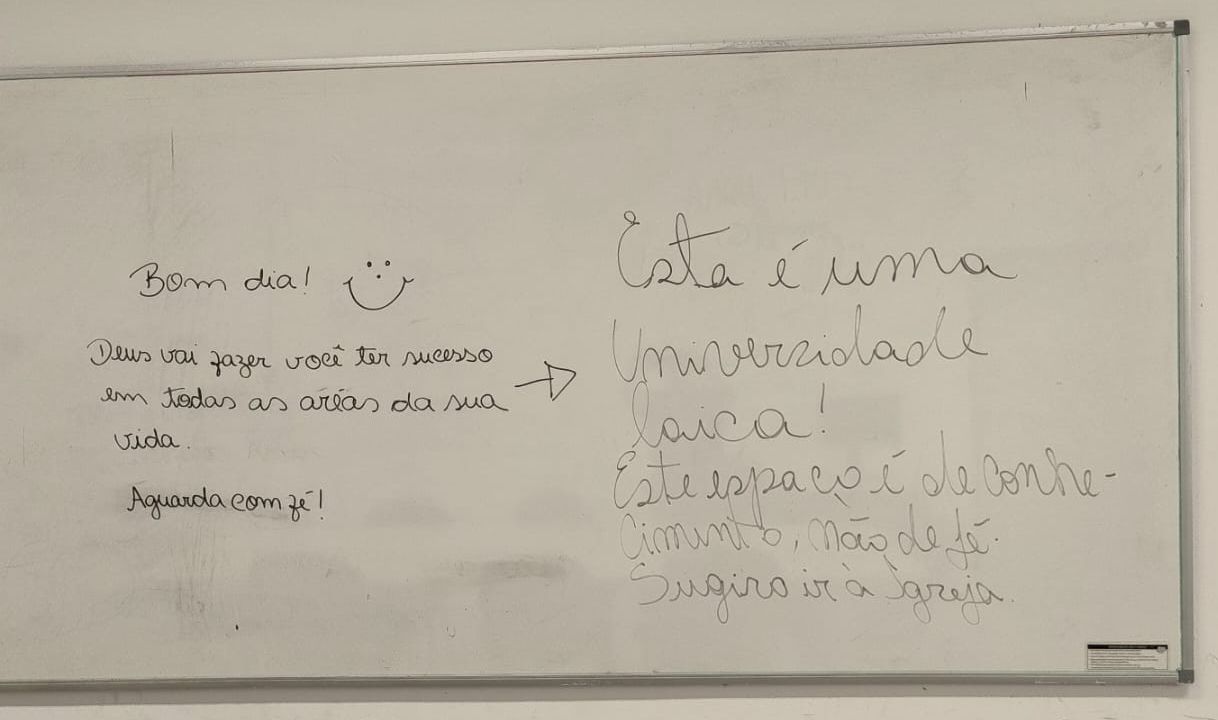 Bom dia!
Deus vai fazer você ter sucesso
em todas as aréas da sua
vida.
Aguarda com fé!
Esta é uma
Universidade
laica!
Este espaço é de conhe-
cimento, não de fé.
Sugiro ir à Igreja.